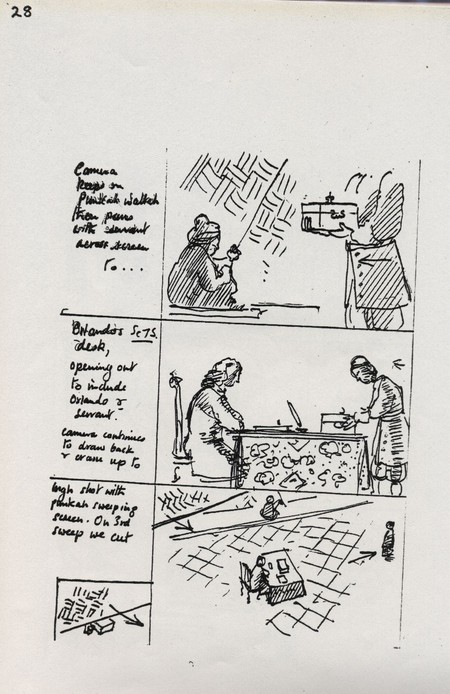 28
Camera
keeps on
Punkah Wallah
then pans
with servant
across screen
to...
Orlando's Sc 75.
desk,
opening out
to include
Orlando &
servant.
camera continues
to draw back
& crane up to
high shot with
punkah sweeping
screen. On 3rd
sweep we cut